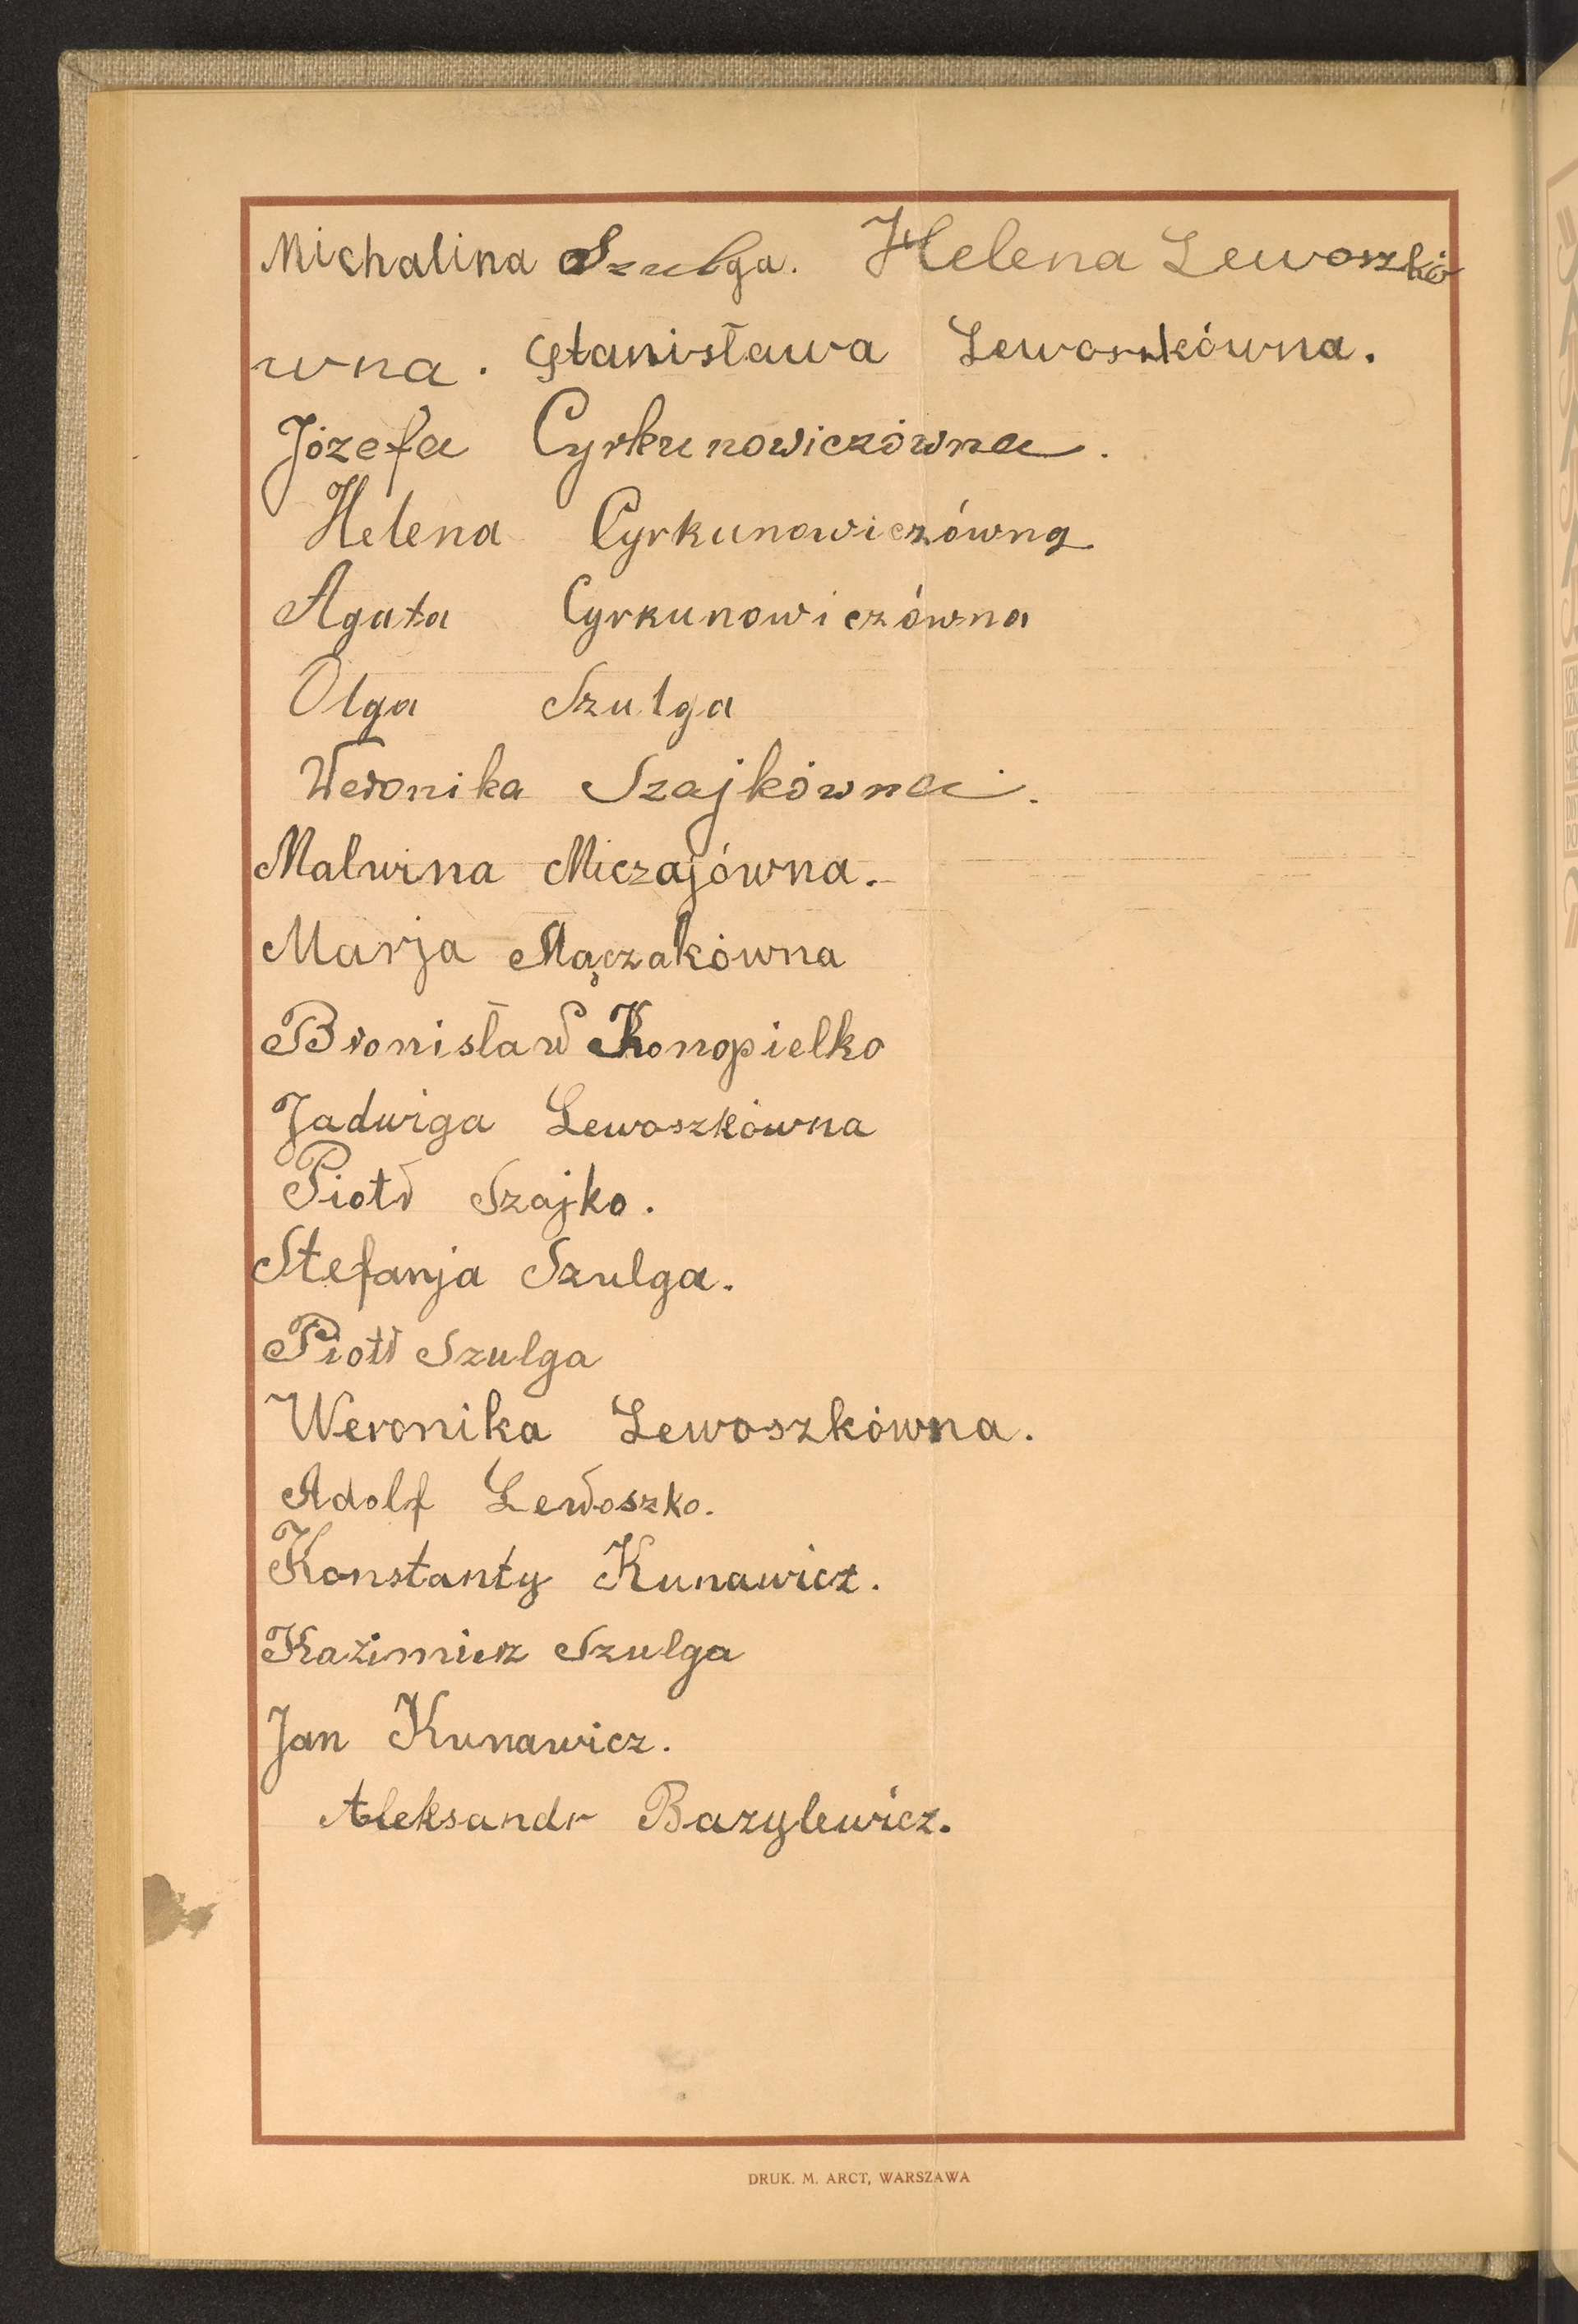 Michalina Szulga. Helena Lewoszkó
wna. Stanisława Lewoszkówna.
Józefa Cyrkunowiczówna.
Helena Cyrkunowiczówna
Agata Cyrkunowiczówna
Olga Szulga
Weronika Szajkówna.
Malwina Miczajówna.
Marja Mączakówna
Bronisław Konopielko
Jadwiga Lewoszkówna
Piotr Szajko.
Stefanja Szulga.
Piotr Szulga
Weronika Lewoszkówna.
Adolf Lewoszko.
Konstanty Kunawicz.
Kazimierz Szulga
Jan Kunawicz.
Aleksandr Bazylewicz.
DRUK. M. ARCT, WARSZAWA